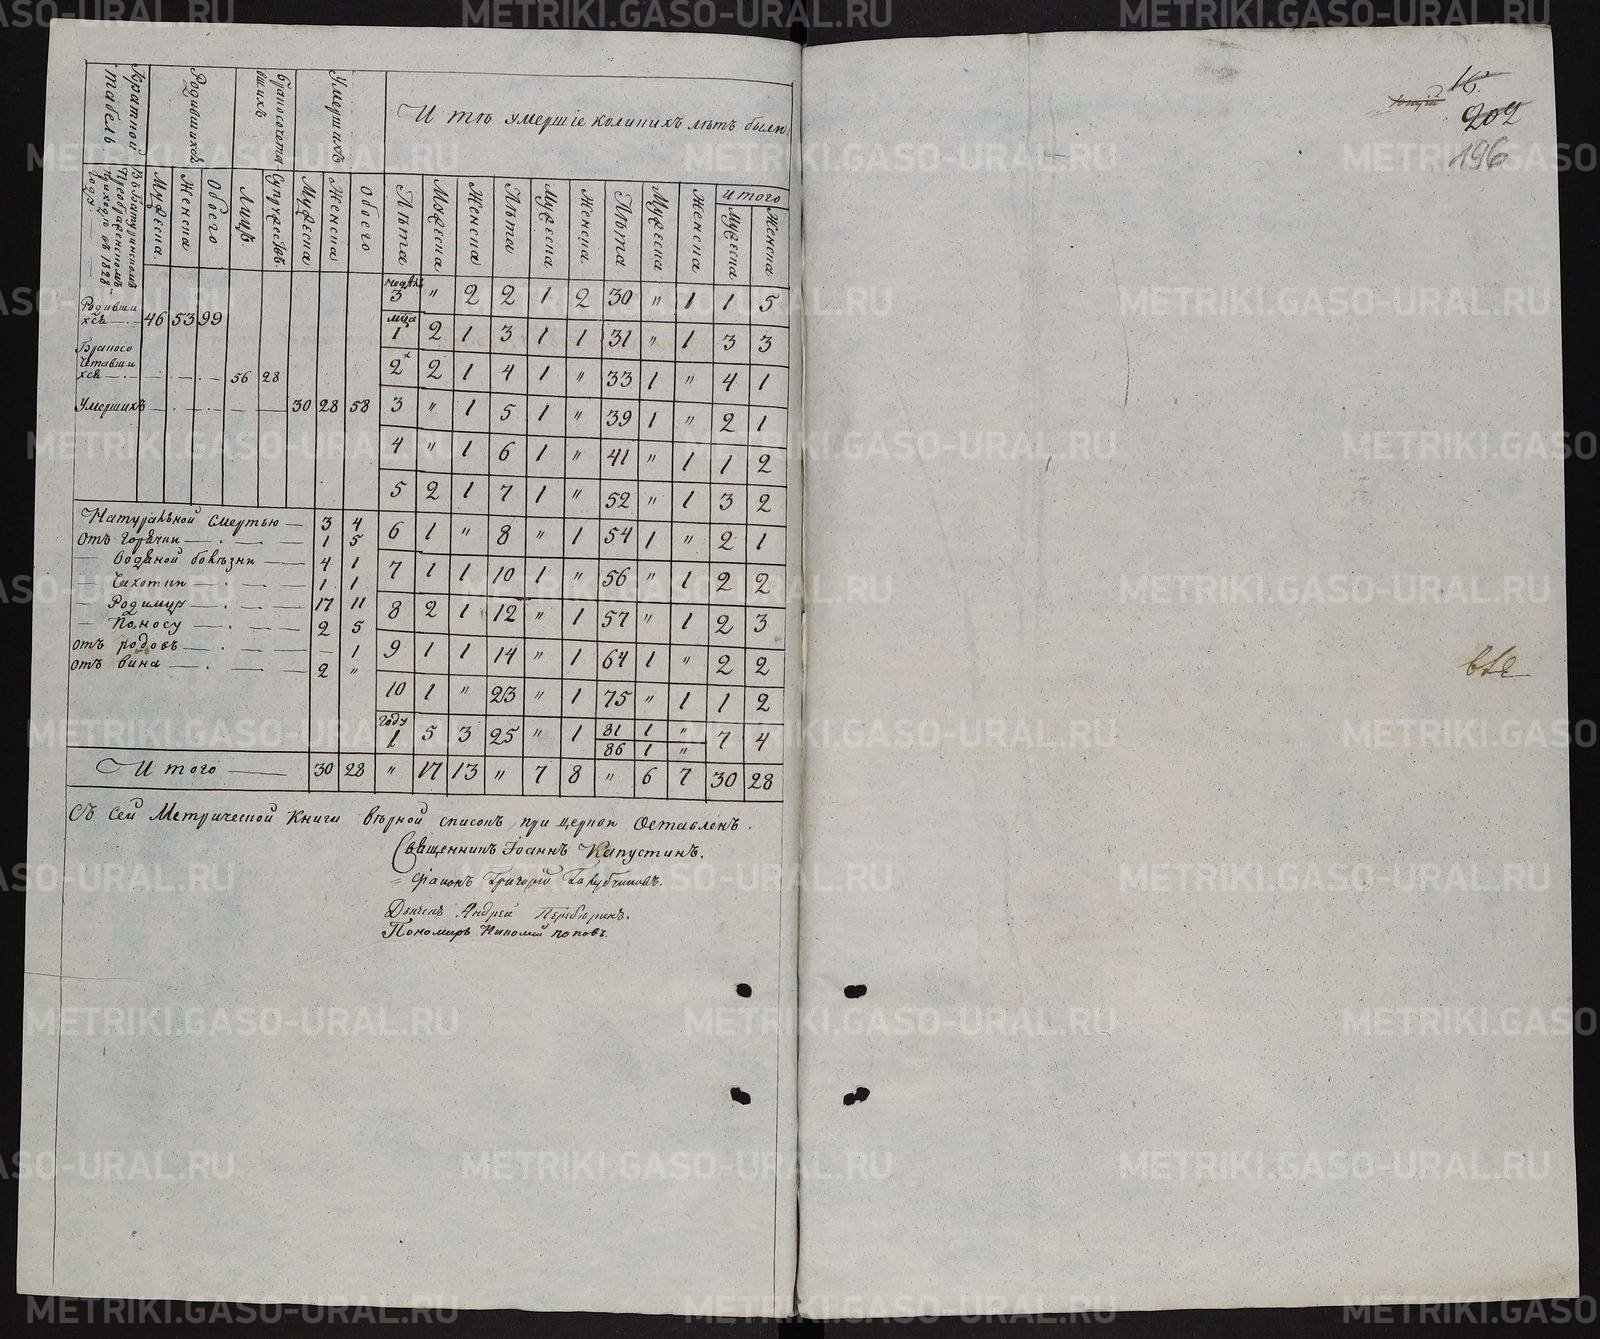 Краткой табель
Родившихся
Бракосочетавшихъ
Умершихъ
И тѣ умершіе колинихъ лѣтъ были:
Въ Батуринскомъ Преображенскомъ приходѣ въ 1828 годѣ
Мужеска. Женска Обоего Лицъ Супружествъ. Мужеска Женска Обоего
Лѣта Мужеска Женска Лѣта Мужеска Женска. Лѣта Мужеска Женска итого Мужеска Женска
Родившихсѣ — 46 53 99
Бракосочетавшихсѣ — 56 28
Умершихъ — 30 28 58
недѣль 3 " 2 2 1 2 30 " 1 1 5
мца 1 2 1 3 1 1 31 " 1 3 3
2 2 1 4 1 " 33 1 " 4 1
3 " 1 5 1 " 39 1 " 2 1
4 " 1 6 1 " 41 " 1 1 2
5 2 1 7 1 " 52 " 1 3 2
6 1 " 8 " 1 54 1 " 2 1
7 1 1 10 1 " 56 " 1 2 2
8 2 1 12 " 1 57 " 1 2 3
9 1 1 14 " 1 64 1 " 2 2
10 1 " 23 " 1 75 " 1 1 2
году 1 5 3 25 " 1 81 1 " 7 4
86 1 "
Натуральной смертью — 3 4
отъ горячки — 1 5
— Водяной болѣзни — 4 1
— Чахотки — 1 1
— Родимцу — 17 11
— Поносу — 2 5
отъ родовъ — — 1
отъ вина — 2 "
Итого — 30 28 " 17 13 " 7 8 " 6 7 30 28
Съ сей Метрической книги вѣрной списокъ при церкви Оставленъ.
Священникъ Іоаннъ Капустинъ.
" Діаконъ Григорій Голубчиковъ.
Дьячекъ Андрей
Пономарь Николай поповъ.
16.
202
196
METRIKI.GASO-URAL.RU